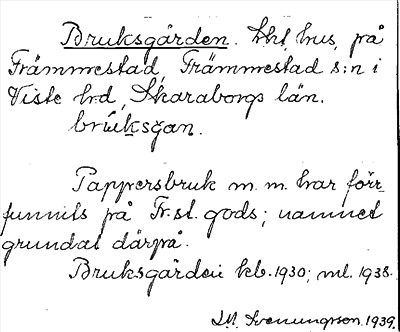 Bruksgården. lht, hus, på
Främmestad, Främmestad s:n i
Viste hd, Skaraborgs län.
brúksgan.
Pappersbruk m. m. har förr
funnits på Fr.st. gods; namnet
grundat därpå.
Bruksgården kb. 1930; ml. 1938.
Svenungsson 1939.